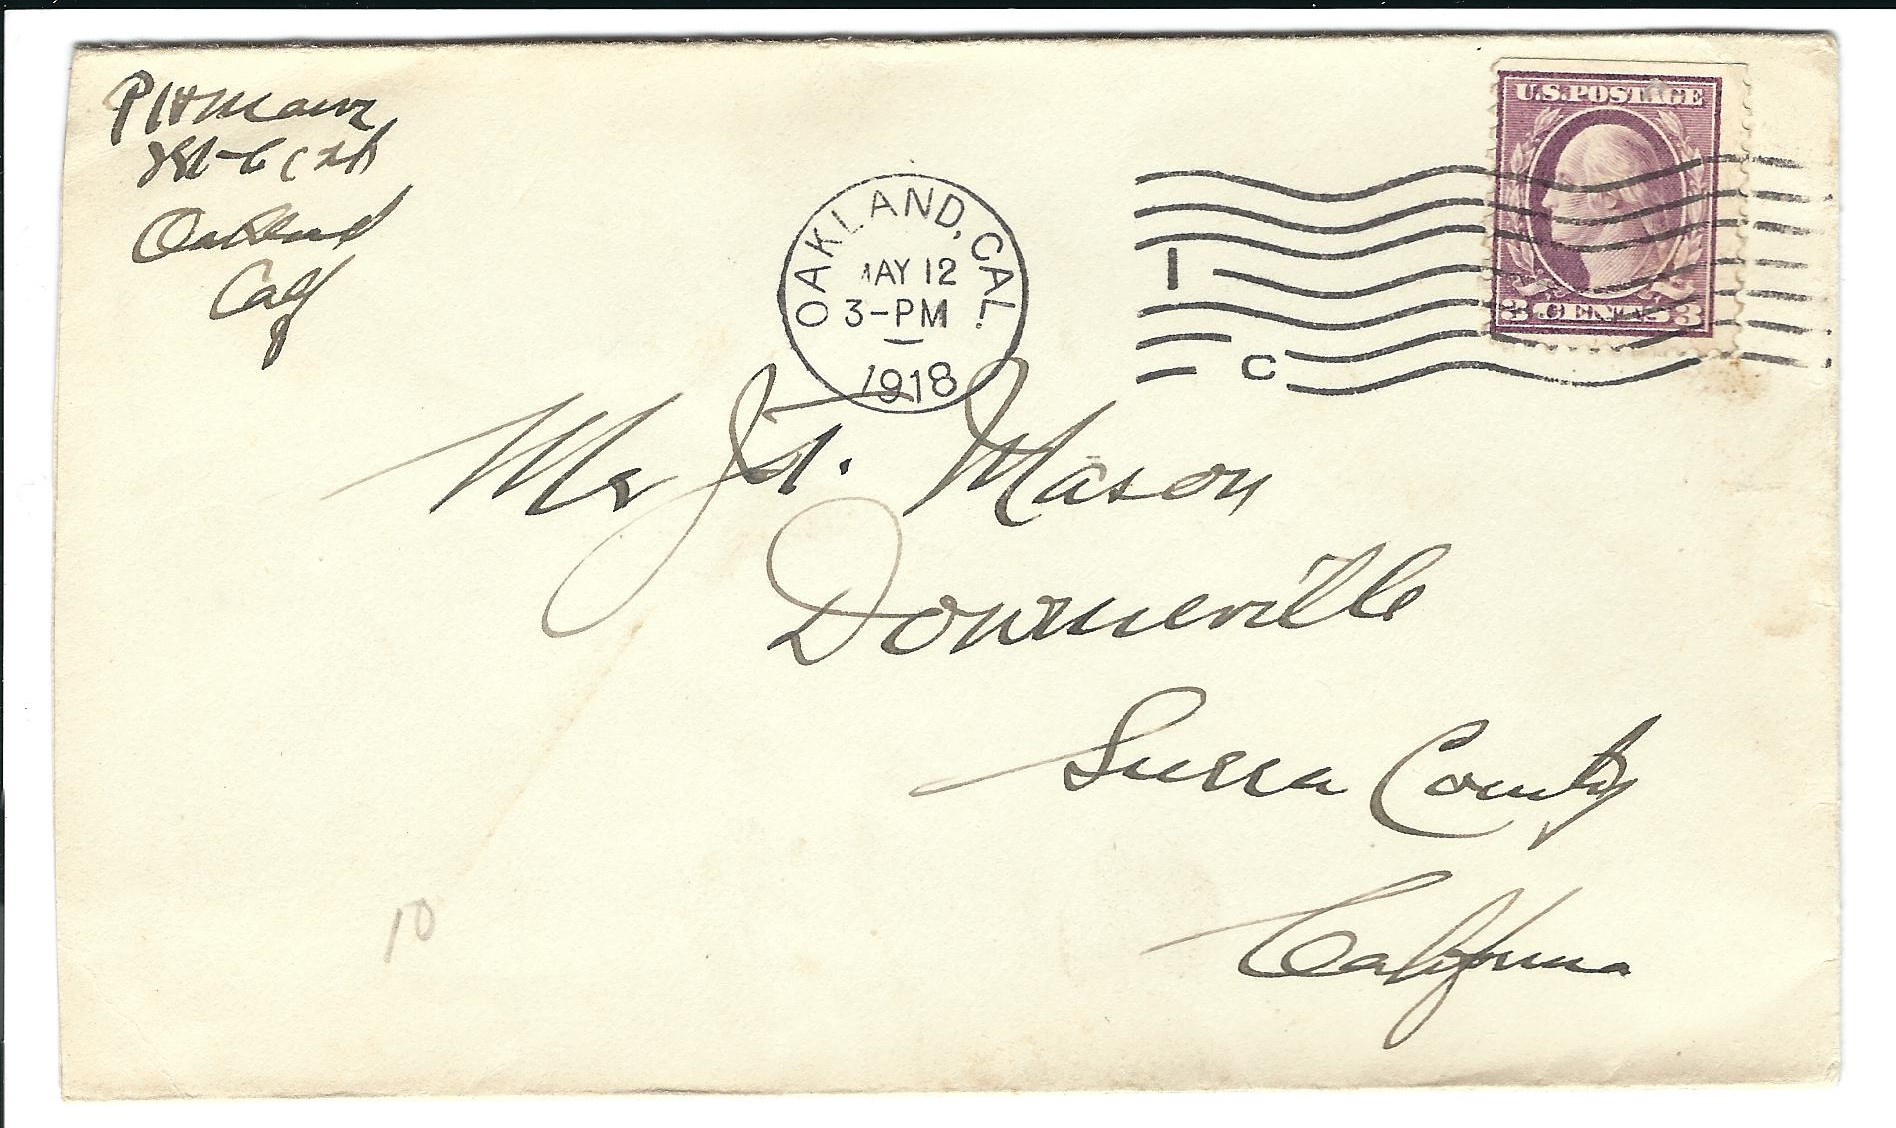 Oakland
Calf
OAKLAND, CAL.
MAY 12
3-PM
1918
1
C
U.S. POSTAGE
3 CENTS 3
Mr J.A. Mason
Downieville
Sierra County
California
10